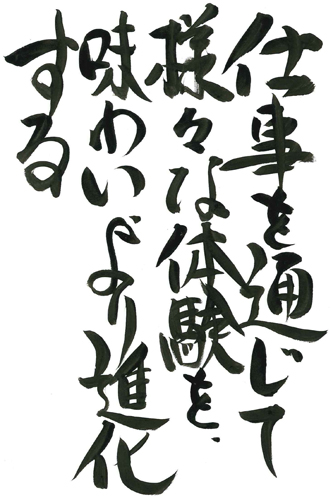 仕事を通じて
様々な体験を、
味わいより進化
する